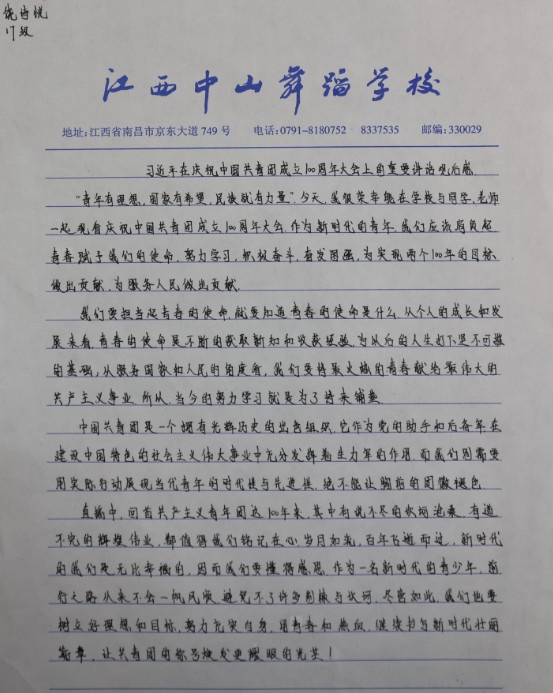 饶诗悦
17级
江西中山舞蹈学校
地址:江西省南昌市京东大道749号 电话:0791-8180752 8337535 邮编:330029
习近平在庆祝中国共青团成立100周年大会上的重要讲话观后感
“青年有理想,国家有希望,民族就有力量”今天,我很荣幸能在学校与同学、老师
一起观看庆祝中国共青团成立100周年大会,作为新时代的青年,我们应该肩负起
青春赋予我们的使命,努力学习,积极奋斗,奋发图强,为实现两个100年的目标
做出贡献,为服务人民做出贡献.
我们要担当起青春的使命,就要知道青春的使命是什么,从个人的成长和发
展来看,青春的使命是不断的获取新知和收获经验,为从后的人生打下坚不可摧
的基础,从服务国家和人民的角度看,我们要将最火热的青春献给最伟大的
共产主义事业,所从,当今的努力学习就是为了将来铺垫.
中国共青团是一个拥有光辉历史的出色组织,它作为党的助手和后备军在
建设中国特色的社会主义伟大事业中充分发挥着生力军的作用,而我们则需要
用实际行动展现当代青年的时代性与先进性,绝不能让胸前的团徽褪色.
直播中,回首共产主义青年团这100年来,其中有说不尽的坎坷沧桑,有道
不完的辉煌伟业,都值得我们铭记在心,岁月如流,百年飞逝而过,新时代
的我们是无比幸福的,因而我们要懂得感恩,作为一名新时代的青少年,前
行之路从来不会一帆风顺,避免不了许多荆棘与坎坷,尽管如此,我们也要
树立好理想和目标,努力充实自身,用青春和热血,继续书写新时代壮丽
篇章,让共青团的称号焕发更耀眼的光芒!